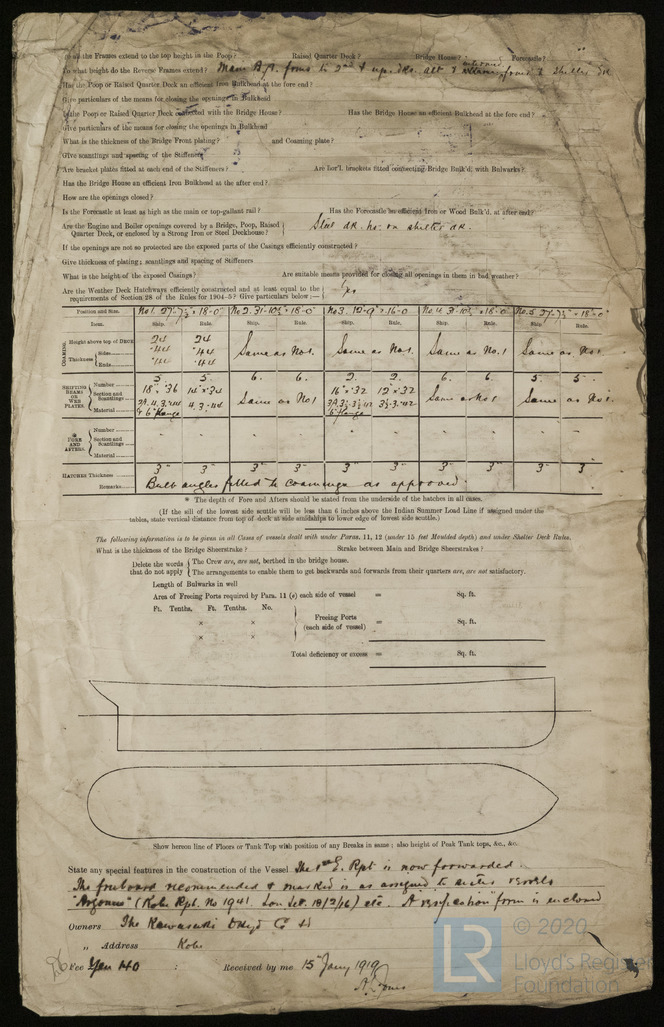 all the Frames extend to the top height in the Poop? Raised Quarter Deck? Bridge House? Forecastle?
To what height do the Reverse Frames extend? Main Bpt. frms to 2nd & upr. dks. alt & frms to Shelter dk
Has the Poop or Raised Quarter Deck an efficient Iron Bulkhead at the fore end?
Give particulars of the means for closing the openings in Bulkhead
Is the Poop or Raised Quarter Deck connected with the Bridge House? Has the Bridge House an efficient Bulkhead at the fore end?
Give particulars of the means for closing the openings in Bulkhead
What is the thickness of the Bridge Front plating? and Coaming plate?
Give scantlings and spacing of the Stiffeners
Are bracket plates fitted at each end of the Stiffeners? Are hor'l. brackets fitted connecting Bridge Bulk'd. with Bulwarks?
Has the Bridge House an efficient Iron Bulkhead at the after end?
How are the openings closed?
Is the Forecastle at least as high as the main or top-gallant rail? Has the Forecastle an efficient Iron or Wood Bulk'd. at after end?
Are the Engine and Boiler openings covered by a Bridge, Poop, Raised Quarter Deck, or enclosed by a Strong Iron or Steel Deckhouse? Steel dk. ho. on shelter dk.
If the openings are not so protected are the exposed parts of the Casings efficiently constructed?
Give plating; scantlings and spacing of Stiffeners
What is the height of the exposed Casings? Are suitable means provided for closing all openings in them in bad weather?
Are the Weather Deck Hatchways efficiently constructed and at least equal to the requirements of Section 28 of the Rules for 1904-5? Give particulars below:— Yes
Position and Size. No 1. 27-7½ × 18-0 No 2. 31-10½ × 18-0 No 3. 12-9 × 16-0 No 4. 3-10½ × 18-0 No 5. 27-7½ × 18-0
Item. Ship. Rule. Ship. Rule. Ship. Rule. Ship. Rule. Ship. Rule.
COAMING. Height above top of DECK 24 24
Thickness Sides .44 .44 Same as No 1. Same as No 1. Same as No. 1 Same as No 1.
Ends .44 .44
SHIFTING BEAMS OR WEB PLATES. Number 5 5 6. 6. 2. 2. 6. 6. 5 5
Section and Scantlings 18 × .36 14 × .34 Same as No 1 16 × .32 12 × .32 Same as No 1 Same as No 1.
Material 4.3.44 4.3.44 3½.3.42
& 6" flange 6" flange
* FORE AND AFTERS. Number
Section and Scantlings
Material
HATCHES Thickness 3" 3" 3" 3" 3" 3" 3" 3" 3" 3
Remarks Bulb angles fitted to coamings as approved.
* The depth of Fore and Afters should be stated from the underside of the hatches in all cases.
(If the sill of the lowest side scuttle will be less than 6 inches above the Indian Summer Load Line if assigned under the
tables, state vertical distance from top of deck at side amidships to lower edge of lowest side scuttle.)
The following information is to be given in all Cases of vessels dealt with under Paras. 11, 12 (under 15 feet Moulded depth) and under Shelter Deck Rules.
What is the thickness of the Bridge Sheerstrake? Strake between Main and Bridge Sheerstrakes?
Delete the words that do not apply
The Crew are, are not, berthed in the bridge house.
The arrangements to enable them to get backwards and forwards from their quarters are, are not satisfactory.
Length of Bulwarks in well
Area of Freeing Ports required by Para. 11 (e) each side of vessel = Sq. ft.
Ft. Tenths. Ft. Tenths. No.
× × Freeing Ports (each side of vessel) = Sq. ft.
× ×
Total deficiency or excess = Sq. ft.
Show hereon line of Floors or Tank Top with position of any Breaks in same; also height of Peak Tank tops, &c., &c.
State any special features in the construction of the Vessel The 1st E. Rpt is now forwarded.
The freeboard recommended & marked is as assigned to sister vessels
"Argonne" (Kobe Rpt. No 1941. Lon Let. 18/2/16) etc. A verification form is enclosed
Owners The Kawasaki Dkyd Co Ld
,, Address Kobe
Fee Yen 140 : Received by me 15 Jany 1919
© 2020
LR
Lloyd's Register
Foundation